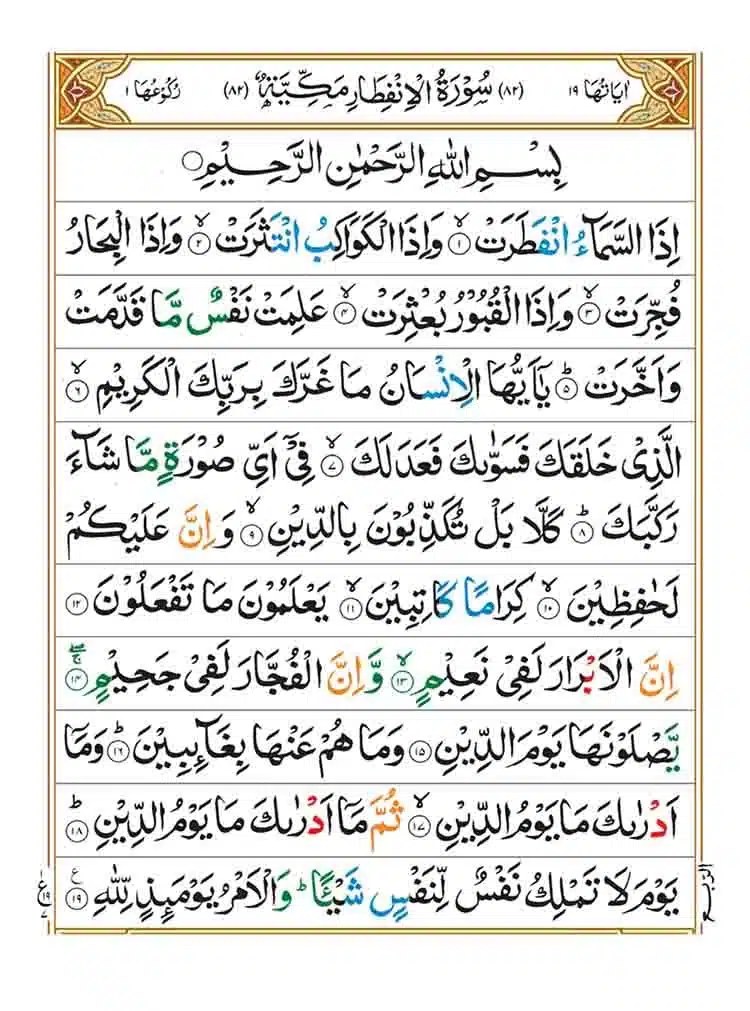 اٰيَاتُهَا ١٩ (٨٢) سُوْرَةُ الْاِنْفِطَارِ مَكِّيَّةٌ (٨٢) رُكُوْعُهَا ١
بِسْمِ اللّٰهِ الرَّحْمٰنِ الرَّحِيْمِ
اِذَا السَّمَآءُ انْفَطَرَتْ ۙ‏﴿١﴾ وَاِذَا الْكَوَاكِبُ انْتَثَرَتْ ۙ‏﴿٢﴾ وَاِذَا الْبِحَارُ
فُجِّرَتْ ۙ‏﴿٣﴾ وَاِذَا الْقُبُوْرُ بُعْثِرَتْ ۙ‏﴿٤﴾ عَلِمَتْ نَفْسٌ مَّا قَدَّمَتْ
وَاَخَّرَتْ ؕ‏﴿٥﴾ يٰۤاَيُّهَا الْاِنْسَانُ مَا غَرَّكَ بِرَبِّكَ الْكَرِيْمِ ۙ‏﴿٦﴾
الَّذِىْ خَلَقَكَ فَسَوّٰٮكَ فَعَدَلَكَ ۙ‏﴿٧﴾ فِىْۤ اَىِّ صُوْرَةٍ مَّا شَآءَ
رَكَّبَكَ ؕ‏﴿٨﴾ كَلَّا بَلْ تُكَذِّبُوْنَ بِالدِّيْنِ ۙ‏﴿٩﴾ وَاِنَّ عَلَيْكُمْ
لَحٰفِظِيْنَ ۙ‏﴿١٠﴾ كِرَامًا كَاتِبِيْنَ ۙ‏﴿١١﴾ يَعْلَمُوْنَ مَا تَفْعَلُوْنَ ﴿١٢﴾
اِنَّ الْاَبْرَارَ لَفِىْ نَعِيْمٍ ۙ‏﴿١٣﴾ وَّاِنَّ الْفُجَّارَ لَفِىْ جَحِيْمٍ ۚۖ‏﴿١٤﴾
يَّصْلَوْنَهَا يَوْمَ الدِّيْنِ ﴿١٥﴾ وَمَا هُمْ عَنْهَا بِغَآٮِٕبِيْنَ ؕ‏﴿١٦﴾ وَمَاۤ
اَدْرٰٮكَ مَا يَوْمُ الدِّيْنِ ۙ‏﴿١٧﴾ ثُمَّ مَاۤ اَدْرٰٮكَ مَا يَوْمُ الدِّيْنِ ؕ‏﴿١٨﴾
يَوْمَ لَا تَمْلِكُ نَفْسٌ لِّنَفْسٍ شَيْـًٔـا ؕ وَالْاَمْرُ يَوْمَٮِٕذٍ لِّلّٰهِ ﴿١٩﴾ ع
الرّبع
ع ١٩